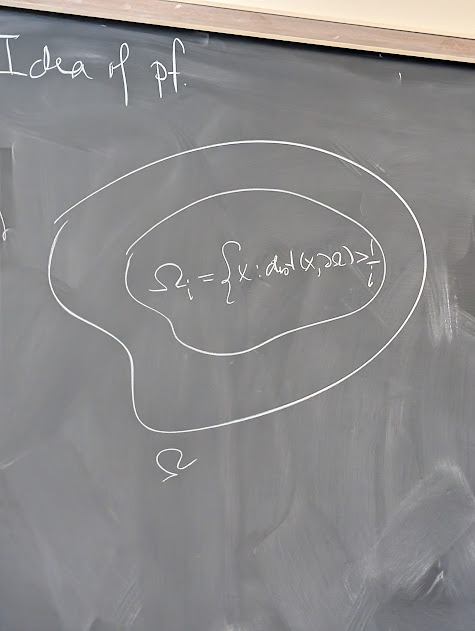 Idea of pf.
Ωᵢ = {x : dist(x, ∂Ω) > 1/i}
Ω